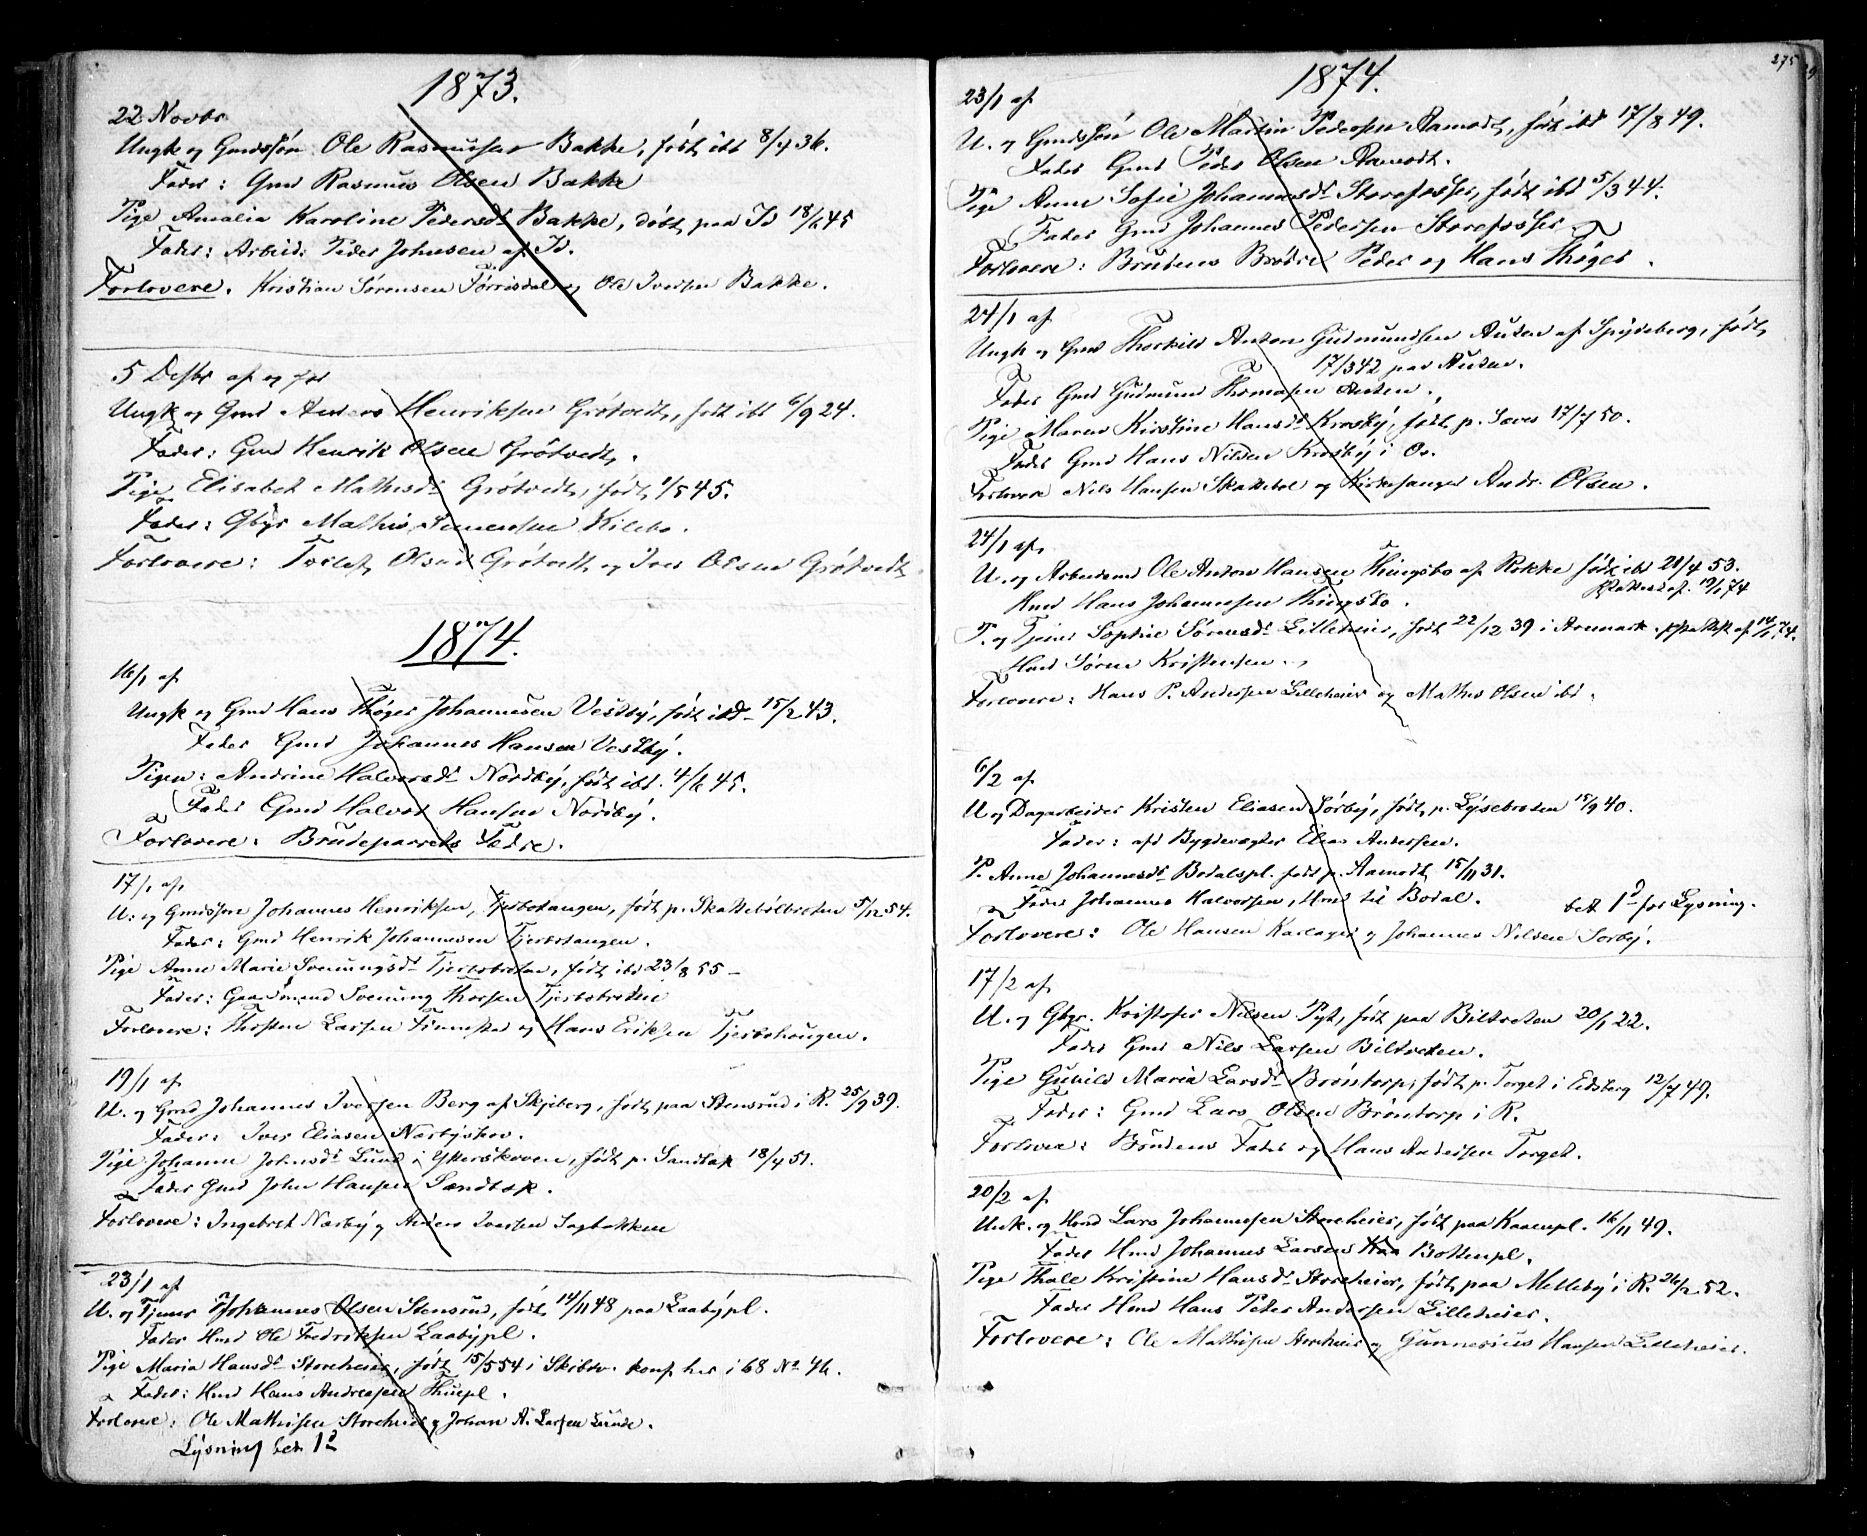 1873.
22 Novbr
Ungk og Gmdssön Ole Rasmussen Bakke, födt ibd 8/4 36.
Fader: Gmd Rasmus Olsen Bakke
Pige Amalia Karoline Pedersdr Bakke, döbt paa Id 18/6 45
Fader: Arbeid: Peder Johnsen af Id.
Forlovere. Kristian Sörensen Törrisdal og Ole Iversen Bakke.
5 Desbr af og for
Ungk og Gmd Anders Henriksen Grötvedt, födt ibd 6/9 24.
Fader: Gmd Henrik Olsen Grötvedt.
Pige Elisabet Mathisdr Grötvedt, födt 1/5 45.
Fader: Gbgr Mathis Simensen Kilebo.
Forlovere: Torlef Olsen Grötvedt og Iver Olsen Grötvedt
1874.
16/1 af
Ungk og Gmd Hans Thöger Johannesen Vestby, födt ibd 15/2 43.
Fader Gmd Johannes Hansen Vestby.
Pigen: Andrine Halvorsdr Nordby, födt ibd. 4/6 45.
Fader Gmd Halvor Hansen Nordby.
Forlovere: Brudeparrets Fædre.
17/1 af
U. og Gmdssön Johannes Henriksen, Tjerbotangen, födt p. Skattebölbraaten 5/12 54.
Fader: Gmd Henrik Johannesen Tjerbotangen.
Pige Anne Marie Svenungsdr Tjerbobraten, födt ibd 23/8 55
Fader: Gaardmand Svenung Thorsen Tjerbobraten
Forlovere: Thosten Larsen og Hans Eriksen Tjerbohaugen.
19/1 af
U. og Gmd Johannes Iversen Berg af Skjeberg, födt paa Stensrud i R. 25/9 39.
Fader: Iver Eliasen Næsbyskov.
Pige Johanne Johnsdr Lund i Ytterskoven, födt p. Sandbæk 18/4 51.
Fader Gmd John Hansen Sandbæk.
Forlovere: Ingebret Næsby og Anders Iversen Sagbakken
23/1 af
U. og Tjener Johannes Olsen Stensrud, födt 14/11 48 paa Laabypl.
Fader Hmd Ole Fredriksen Laabypl.
Pige Maria Hansdr Storeheier, födt 15/5 54 i Skibtv. konf her i 68 No 46.
Fader: Hmd Hans Andreasen Thuepl.
Forlovere: Ole Mathisen Storeheier og Johan A. Larsen Lunde.
Lysning bet. 1 d
275
1874.
23/1 af
U. og Gmdssön Ole Martin Pedersen Aamodt, födt ibd 17/8 49.
Fader Gmd Peder Olsen Aamodt.
Pige Anne Sofie Johannesdr Storefosser, födt ibd 5/3 44.
Fader Gmd Johannes Pedersen Storefosser
Forlovere: Brudens Brödre Peder og Hans Thöger.
24/1 af
Ungk og Gmd Thorkild Anton Gudmundsen Austen af Spydeberg, födt
17/3 42 paa Austen.
Fader Gmd Gudmund Thomasen Austen.
Pige Maren Kirstine Hansdr Krosby, födt p. 17/7 50.
Fader Gmd Hans Nilsen Krosby i Os.
Forlovere Nils Hansen Skattebol og Kirkesanger Andr. Olsen.
24/1 af
U. og Arbeidsmd Ole Anton Hansen Thingsbo af Rokke födt ibd 21/4 53.
Pr. attest af 19/1 74
Hmd Hans Johannesen Thingsbo.
P. og Tjener Sophie Sörensdr Lilleheier, födt 22/12 39 i Aremark. Pr. attest af 14/1 74.
Hmd Sören Kristensen
Forlovere: Hans P. Andersen Lilleheier og Mathis Olsen ibd.
6/2 af
U og Dagarbeider Kristen Eliasen Sörby, födt p. Lysebraaten 15/9 40.
Fader: afd Bygdevægter Elias Andersen.
P. Anne Johannesdr Bodalspl. födt p. Aamodt 15/11 31.
Fader Johannes Halvorsen, Hmd til Bodal.
bet 1 d for Lysning.
Forlovere: Ole Hansen Karlager og Johannes Nilsen Sorby.
17/2 af
U. og Gbgr. Kristofer Nilsen Pyt, födt paa Biltvedten 20/1 22.
Fader Gmd Nils Larsen Biltvedten.
Pige Gunild Maria Larsdr Bröntorp; födt p. Torget i Eidsberg 12/7 49.
Fader: Gmd Lars Olsen Bröntorp i R.
Forlovere: Brudens Fader og Hans Andersen Torget.
20/2 af
Unk. og Hmd Lars Johannesen Storeheier, födt paa Kaaenpl. 16/11 49.
Fader Hmd Johannes Larsen Kaa Bottenpl.
Pige Thale Kristine Hansdr Storeheier, födt paa Melleby i R. 26/2 52.
Fader Hmd Hans Peder Andersen Lilleheier.
Forlovere: Ole Mathisen Storeheier og Gunnerius Hansen Lilleheier.